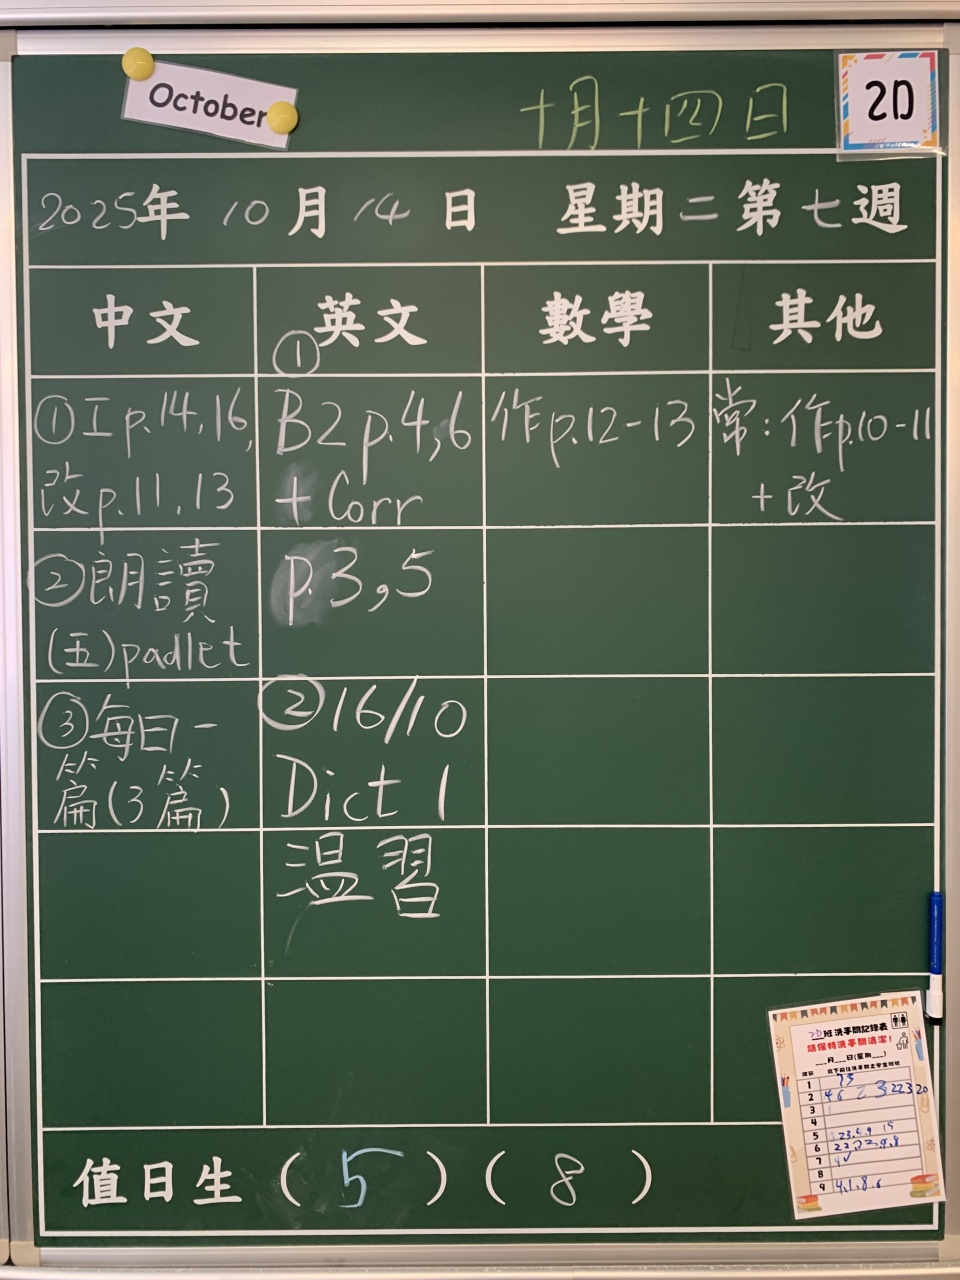 October
十月十四日
2D
2025年 10月 14日 星期二 第七週
中文
英文
數學
其他
①工p.14,16,
改p.11,13
②朗讀
(五)padlet
③每日一
篇(3篇)
①
B2 p.4,6
+ Corr
p.3,5
②16/10
Dict 1
温習
作p.12-13
常:作p.10-11
+改
2D班洗手間記錄表
請保持洗手間清潔!
___月___日(星期___)
1
2
3
4
5
6
7
8
9
值日生 ( 5 ) ( 8 )